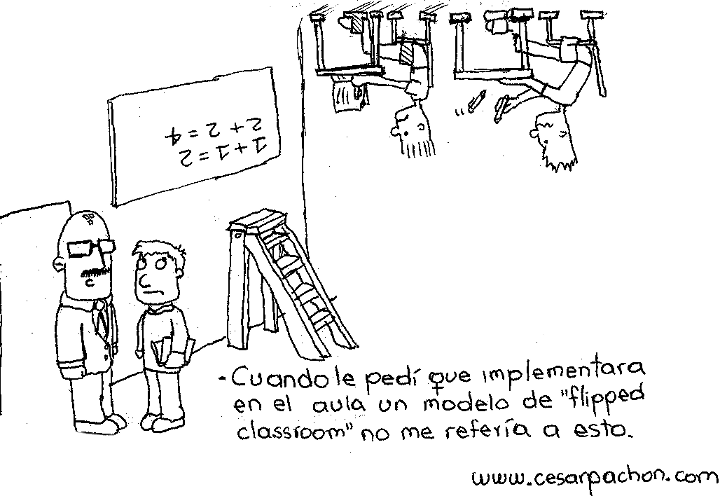 1+1=2
2+2=4
- Cuando le pedí que implementara
en el aula un modelo de "flipped
classroom" no me refería a esto.
www.cesarpachon.com